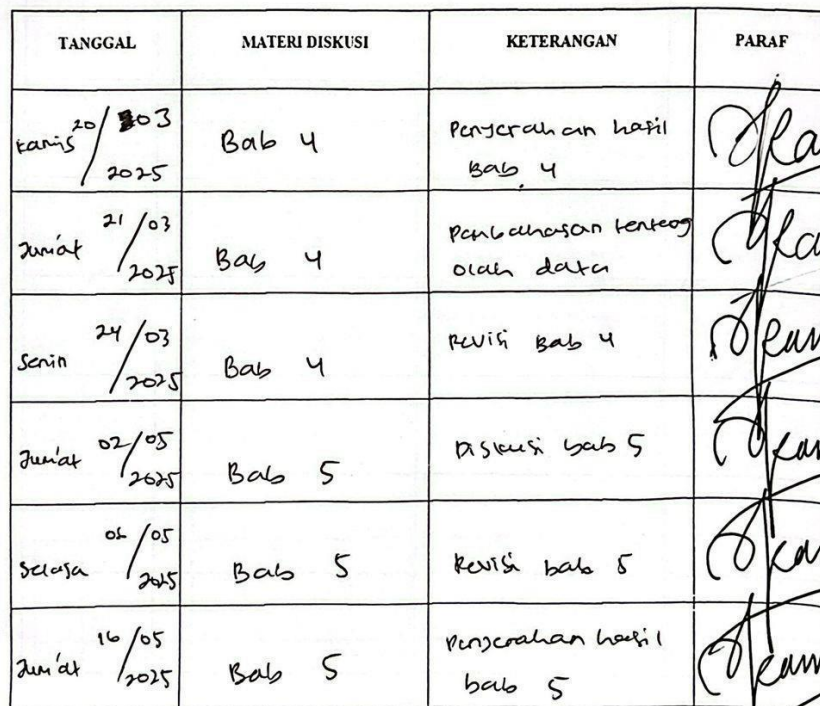 TANGGAL MATERI DISKUSI KETERANGAN PARAF
Kamis 20/03 2025 Bab 4 Penyerahan hasil
Bab 4
Jum'at 21/03 2025 Bab 4 Pembahasan tentang
olah data
Senin 24/03 2025 Bab 4 Revisi Bab 4
Jum'at 02/05 2025 Bab 5 Diskusi bab 5
Selasa 06/05 2025 Bab 5 Revisi bab 5
Jum'at 16/05 2025 Bab 5 Penyerahan hasil
bab 5